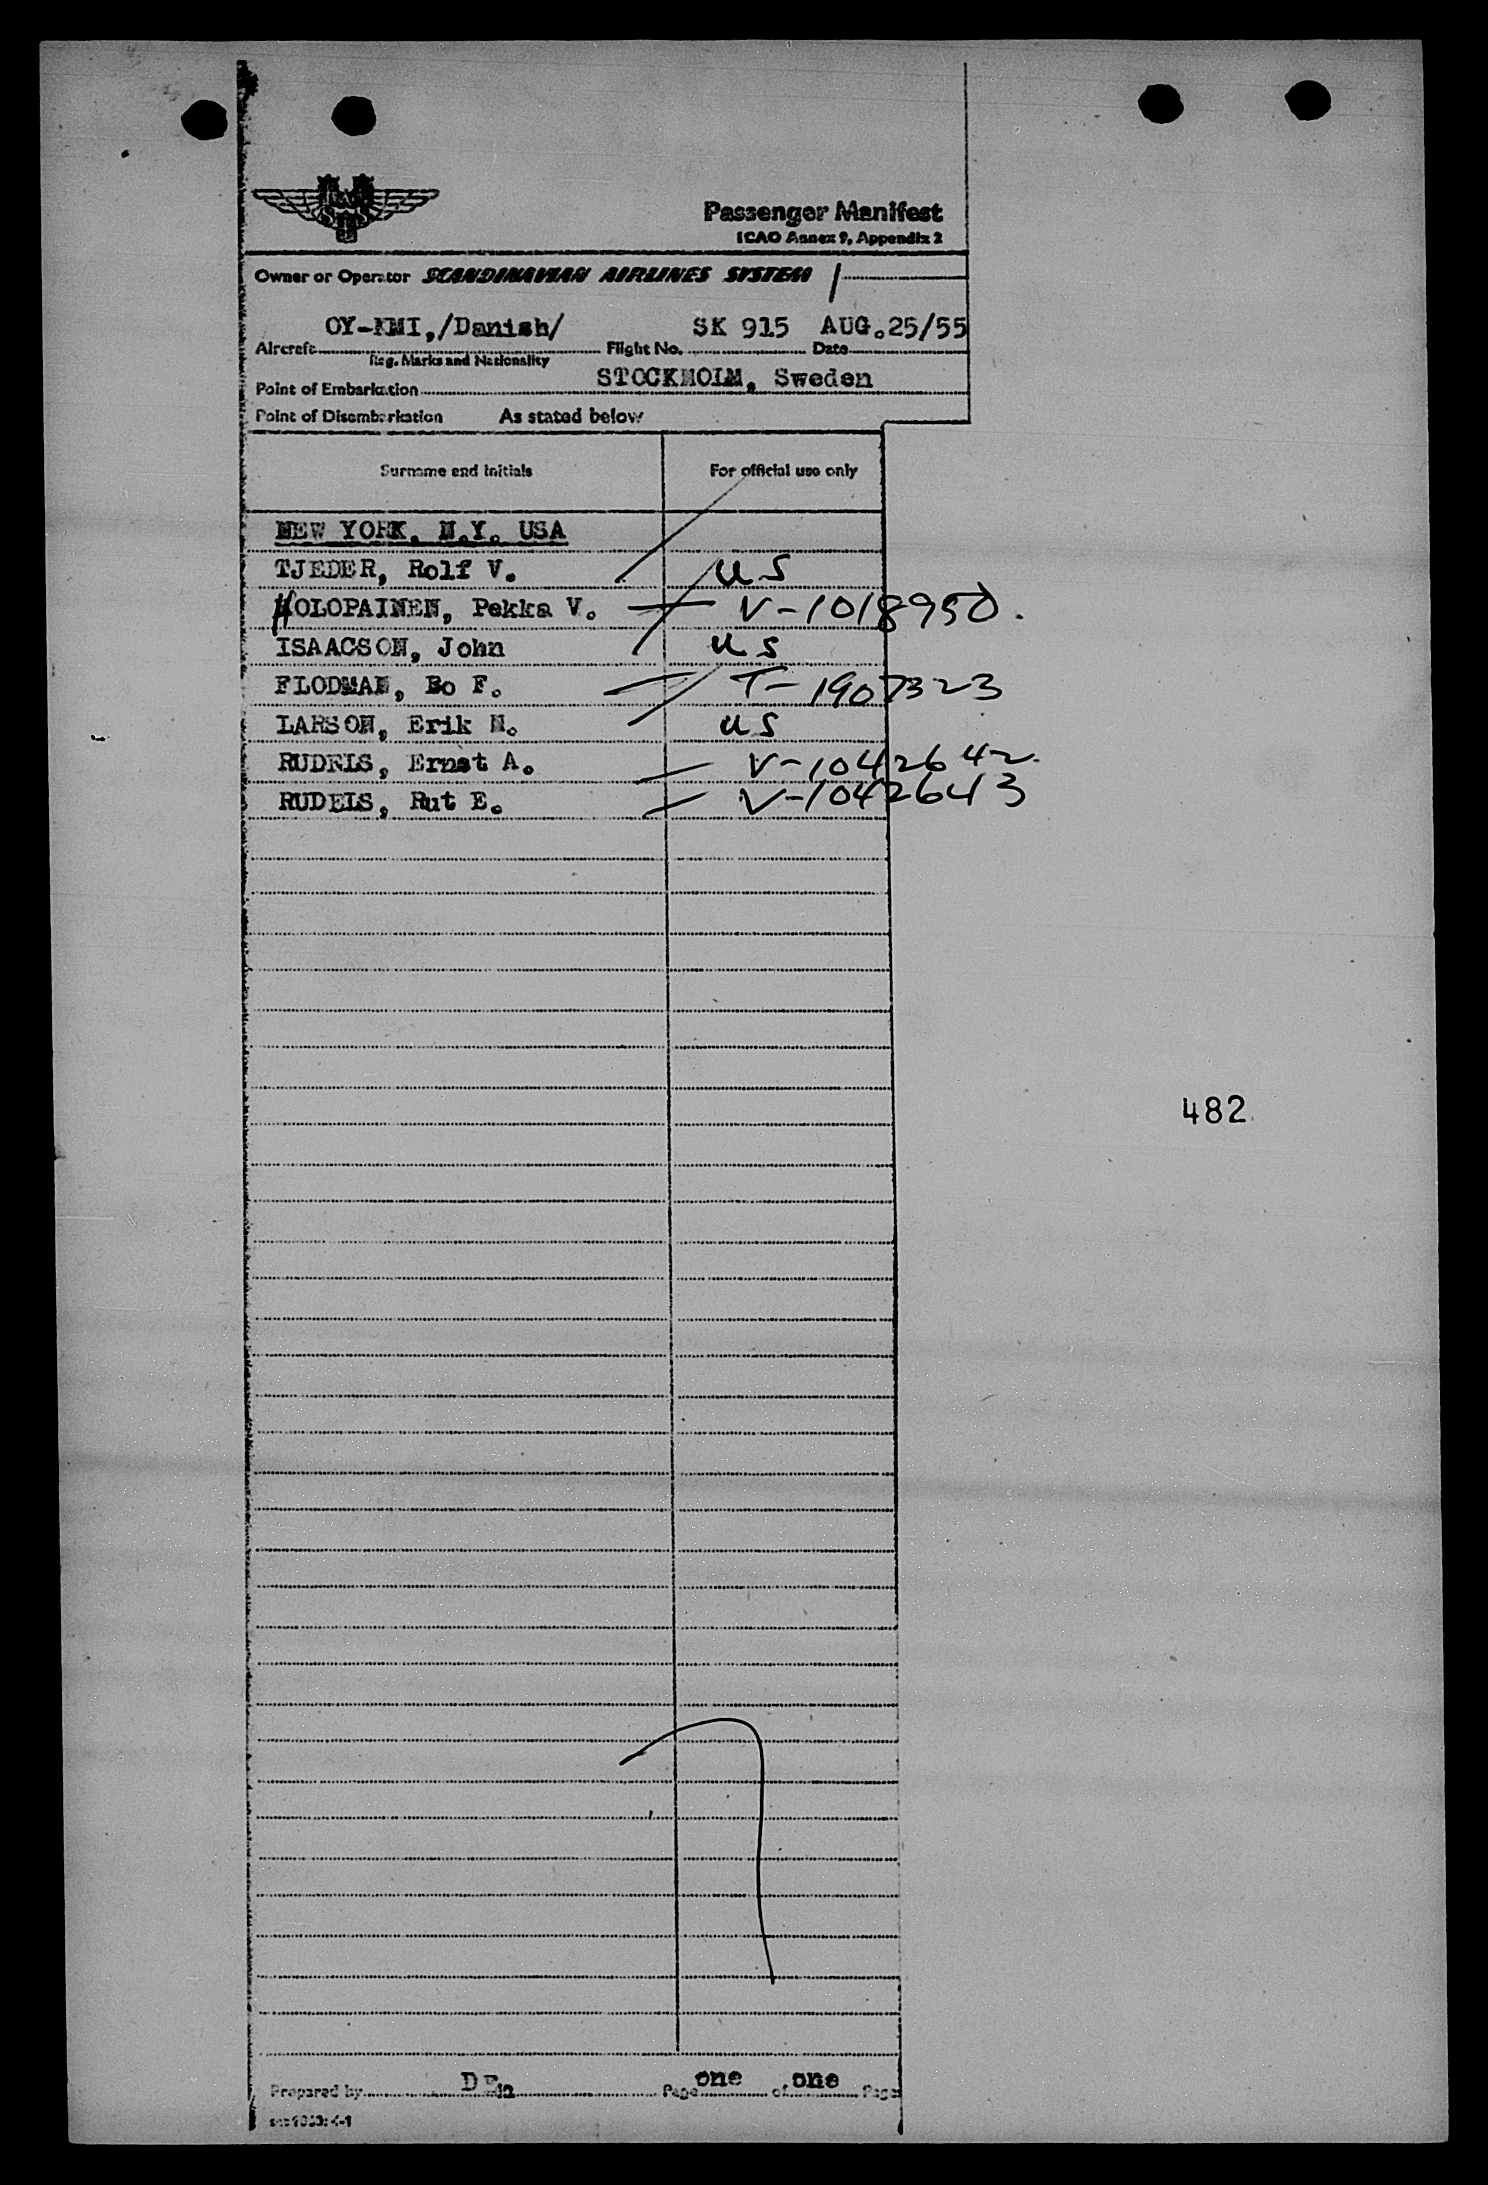 Passenger Manifest
ICAO Annex 9, Appendix 2
Owner or Operator SCANDINAVIAN AIRLINES SYSTEM
OY-KMI,/Danish/ SK 915 AUG.25/55
Aircraft Flight No. Date
Reg. Marks and Nationality
STOCKHOLM, Sweden
Point of Embarkation
Point of Disembarkation As stated below
Surname and initials For official use only
NEW YORK, N.Y. USA
TJEDER, Rolf V. US
HOLOPAINEN, Pekka V. V-1018950.
ISAACSON, John US
FLODMAN, Bo F. T-1907323
LARSON, Erik N. US
RUDELS, Ernst A. V-1042642
RUDELS, Rut E. V-1042643
482
Prepared by Page one of one Pages